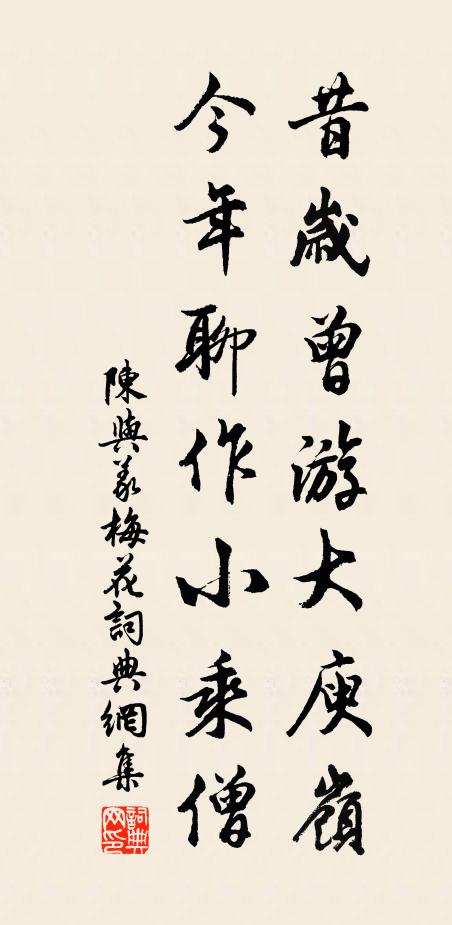 昔歲曾游大庾嶺
今年聊作小乘僧
陳與義梅花詞典網集
詞典網印